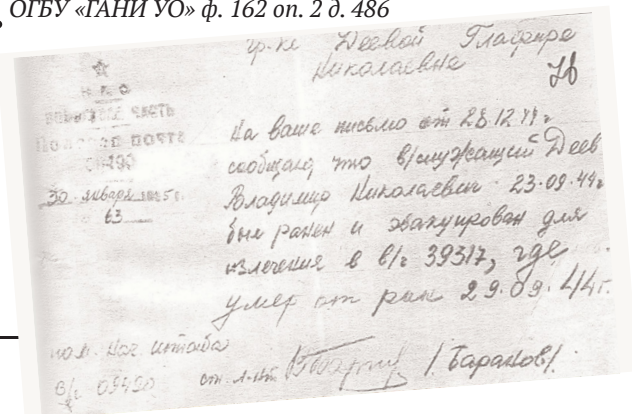 ОГБУ «ГАНИ УО» ф. 162 оп. 2 д. 486
гр-ке Деевой Глафире
Николаевне
НКО
войсковая часть
Полевая почта
30 января 1945 г.
63
На ваше письмо от 28.12.44 г
сообщаю, что в/служащий Деев
Владимир Николаевич 23.09.44 г
был ранен и эвакуирован для
излечения в в/ч 39317, где
умер от ран 29.09.44 г.
пом. нач. штаба
в/ч 09490 ст. л-нт /Баранов/